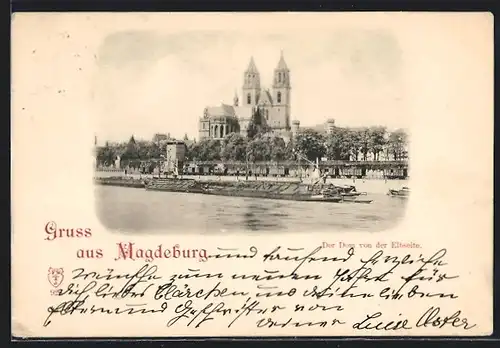 Gruss
aus Magdeburg.
Der Dom von der Elbseite.
und tausend herzliche
Wünsche zum neuen Jahr für
dich liebes Clärchen und deine lieben
Eltern und Geschwister von
deiner Luise